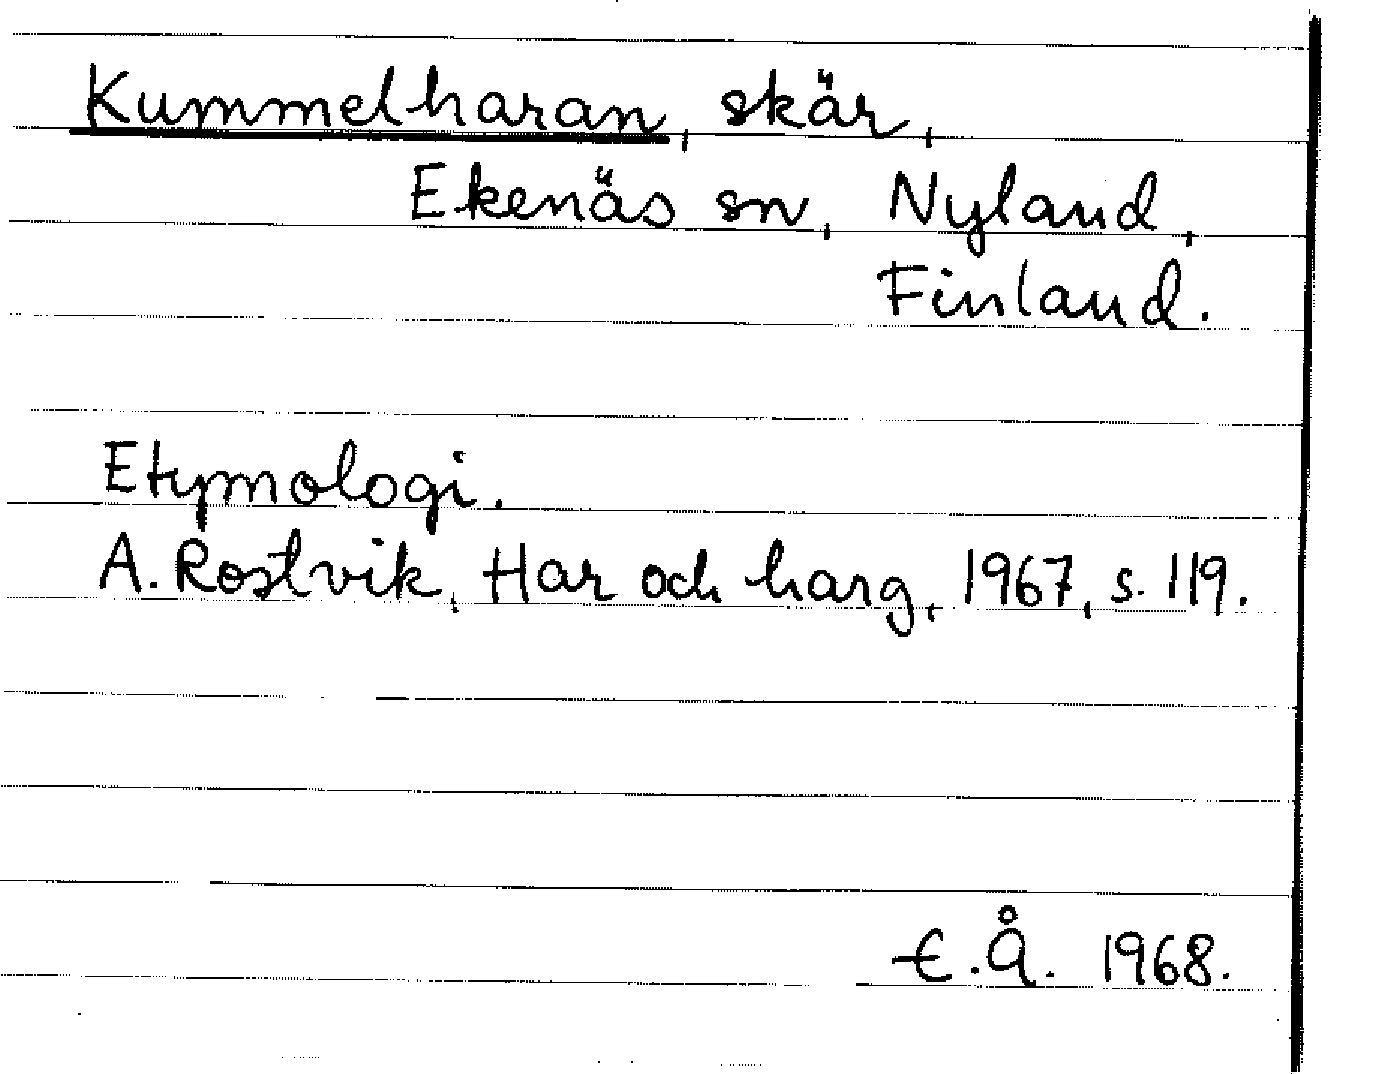 Kummelharan, skär,
Ekenäs sn, Nyland,
Finland.
Etymologi.
A. Rostvik, Har och harg, 1967, s. 119.
E.Å. 1968.